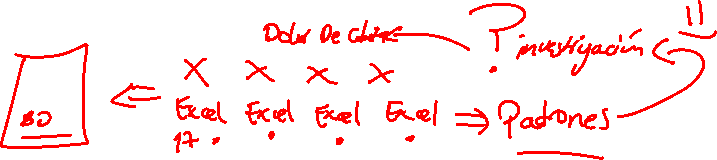 Dolor De
? investigación
X X X X
BD
Excel Excel Excel Excel ⇒ Padrones
17